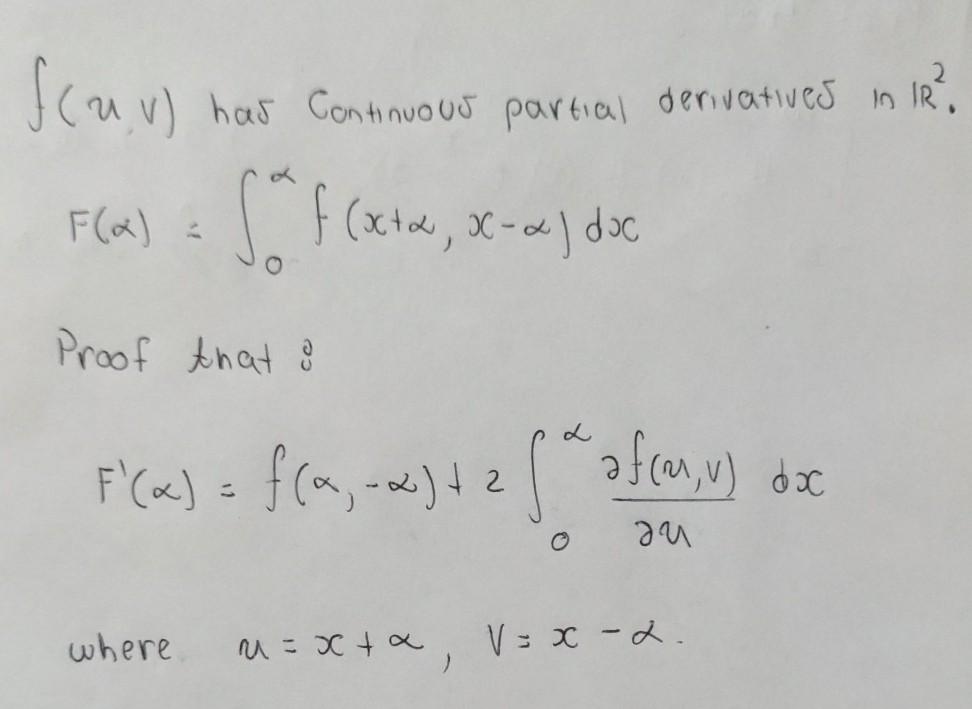 f(u,v) has Continuous partial derivatives in ℝ².
F(α) = ∫₀^α f(x+α, x-α) dx
Proof that :
F'(α) = f(α, -α) + 2 ∫₀^α ∂f(u,v)/∂u dx
where u = x + α, V = x - α.